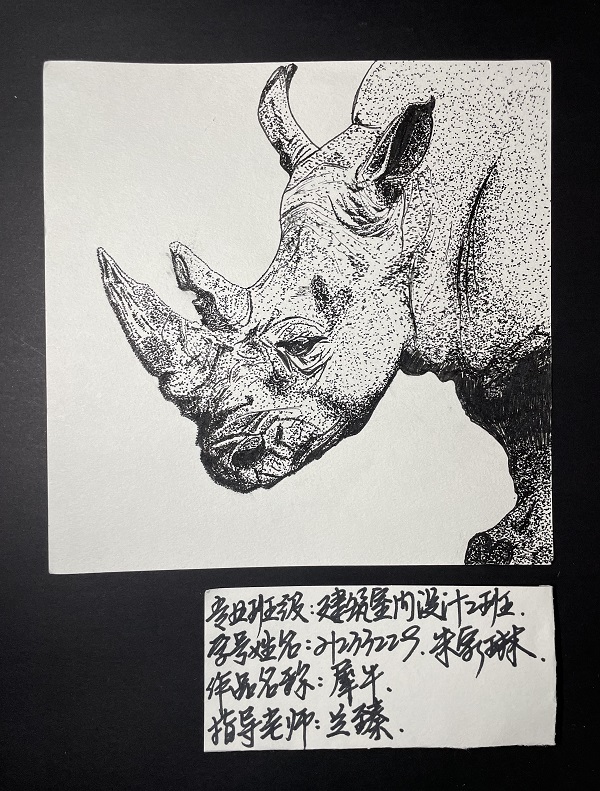 专业班级:建筑室内设计2班.
学号姓名:21233229.朱家琳.
作品名称:犀牛.
指导老师:兰臻.